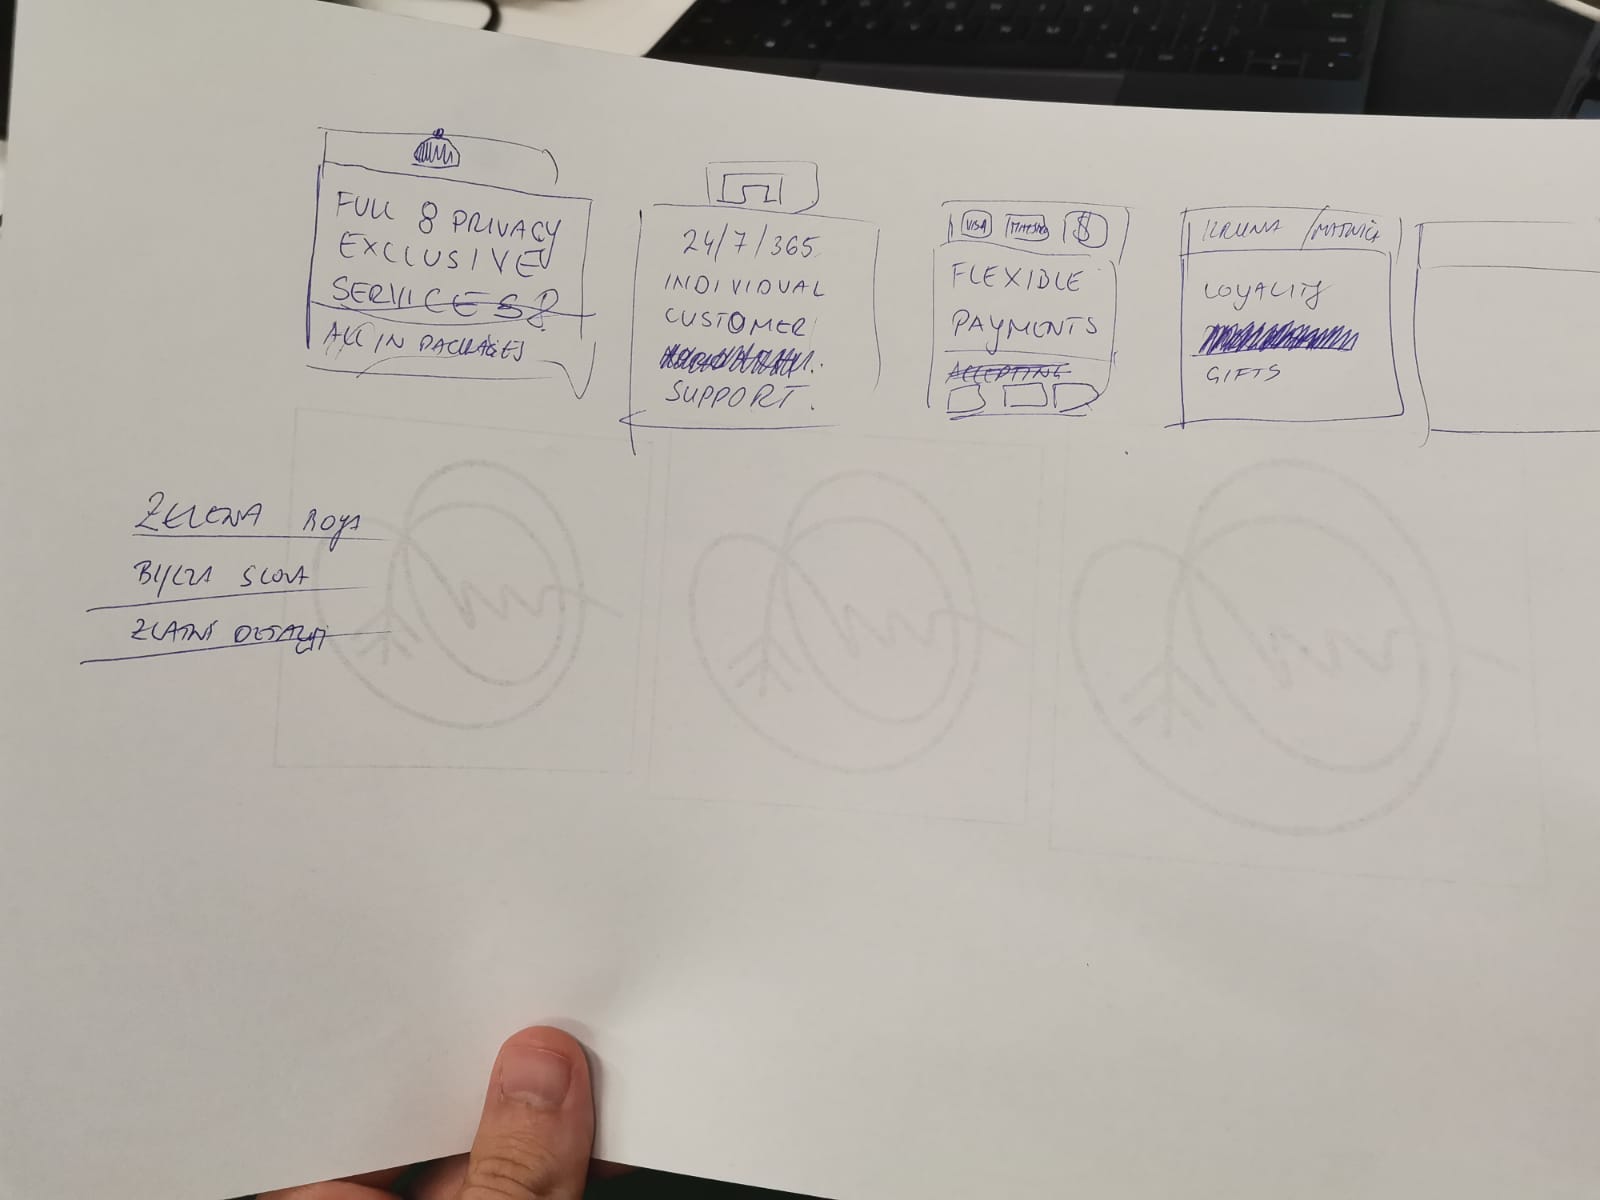 FULL & PRIVACY
EXCLUSIVE
SERVICES &
ALL IN PACKAGES
24/7/365
INDIVIDUAL
CUSTOMER
SUPPORT.
VISA
$
FLEXIBLE
PAYMENTS
ACCEPTING
KRUNA /
LOYALITY
GIFTS
ZELENA BOJA
BIJELA SLOVA
ZLATNI DETALJI